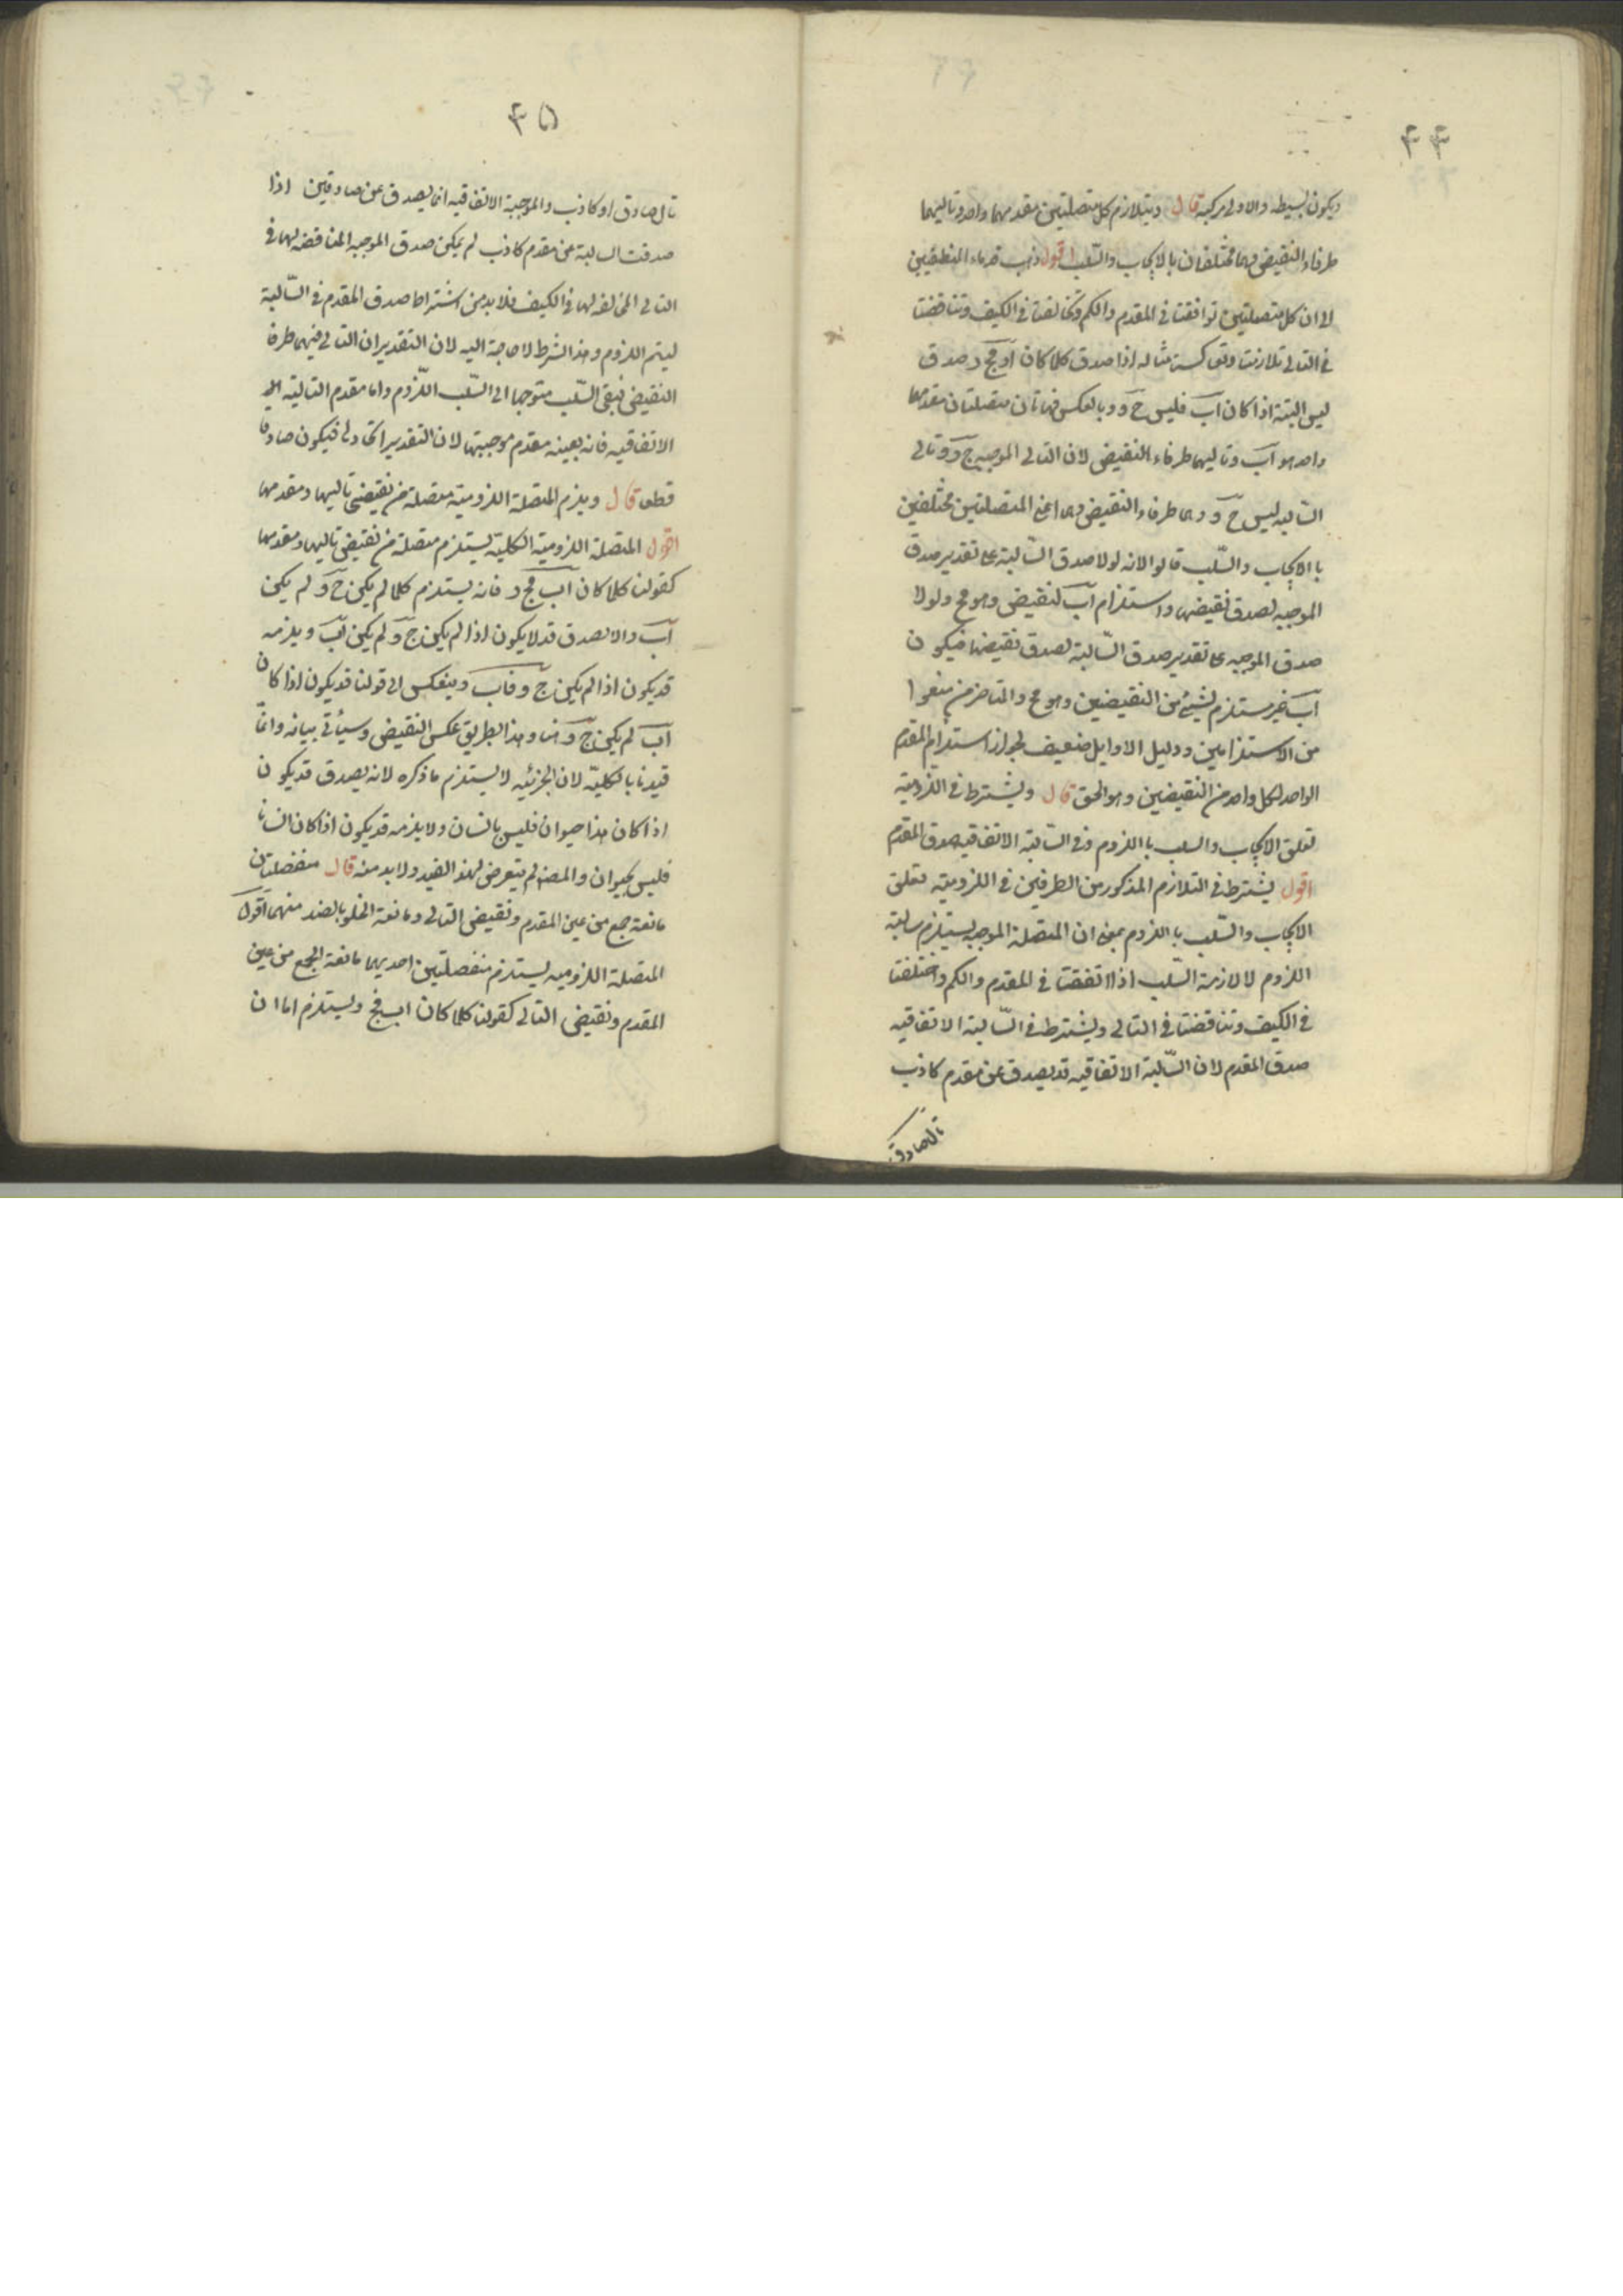 ۴۴
ويكون بسيطه والاولى مركبه قال ويتلازم كل متصلتين مقدمهما واحد وتاليهما
طرفاء النقيض وهما مختلفان بالايجاب والسّلب اقول ذهب قدماء المنطقيين
الى ان كل متصلتين توافقتا فى المقدم والكم وتخالفتا فى الكيف وتناقضتا
فى التالى تلازمتا وتعاكستا مثاله اذا صدق كلما كان اب فج د صدق
ليس البتة اذا كان اب فليس ج د وبالعكس فهاتان متصلتان مقدمهما
واحد هو اب وتاليهما طرفاء النقيض لان التالى الموجبه ج د وتالى
السّالبه ليس ج د وهما طرفاء النقيض وهما اعنى المتصلتين مختلفين
باالايجاب والسّلب قالوا لانه لولا صدق السّالبة على تقدير صدق
الموجبه لصدق نقيضها واستلزام اب لنقيضى وهو مح ولولا
صدق الموجبه على تقدير صدق السّالبة لصدق نقيضها فيكون
اب غير مستلزم لشيئ من النقيضين وهو مح والمتاخرين منعوا
من الاستلزامين ودليل الاوايل ضعيف لجواز استلزام المقدم
الواحد لكل واحد من النقيضين وهو الحق قال ويشترط فى اللزومية
تعلق الايجاب والسلب باللزوم وفى السّالبة الاتفاقيه صدق المقدم
اقول يشترط فى التلازم المذكور من الطرفين فى اللزوميه تعلق
الايجاب والسّلب باالزوم بمعنى ان المتصلة الموجبه يستلزم سالبة
اللزوم لا لازمة السّلب اذا اتفقتا فى المقدم والكم واختلفتا
فى الكيف وتناقضتا فى التالى ويشترط فى السّالبة الاتفاقيه
صدق المقدم لان السّالبة الاتفاقيه قد يصدق عن مقدم كاذب
تال صادق
۴۵
تال صادق او كاذب والموجبة الاتفاقيه انما يصدق عن صادقين اذا
صدقت السالبة عن مقدم كاذب لم يمكن صدق الموجبه المناقضه لها فى
التالى المخالفه لها فى الكيف فلا بد من اشتراط صدق المقدم فى السّالبة
ليتم اللزوم وهذا الشرط لا حاجة اليه لان التقدير ان التالى فيهما طرفا
النقيض فبقى السّلب متوجها الى السّلب اللّزوم واما مقدم السالبة
الاتفاقيه فانه بعينه مقدم موجبتها لان التقدير اتحاد لى فيكون صادقا
قطعا قال ويلزم المتصلة اللزومية متصلة من نقيضى تاليها ومقدمها
اقول المتصلة اللزومية الكلية يستلزم متصلة من نقيضى تاليها ومقدمها
كقولنا كلما كان اب فج د فانه يستلزم كلما لم يكن ج د لم يكن
اب والا لصدق قد لا يكون اذا لم يكن ج د لم يكن اب ويلزمه
قد يكون اذا لم يكن ج د فاب وينعكس الى قولنا قد يكون اذا كان
اب لم يكن ج د وهذا الطريق عكس النقيض وسيأتى بيانه وانّما
قيدنا بالكليّه لان الجزئيه لا يستلزم ما ذكره لانه يصدق قد يكون
اذا كان هذا حيوان فليس بانسان ولا يلزمه قد يكون اذا كان انسانا
فليس بحيوان والمصنف لم يتعرض لهذا القيد ولا بد منه قال منفصلتان
مانعة جمع من عين المقدم ونقيض التالى ومانعة الخلو بالضد منهما اقول
المتصلة اللزوميه يستلزم منفصلتين احديهما مانعة الجمع من عين
المقدم ونقيض التالى كقولنا كلما كان اب فج د يستلزم اما ان